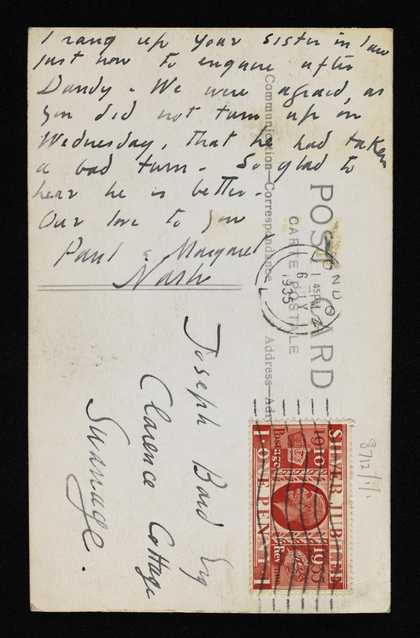 I rang up your sister in law
just now to enquire after
Dandy. We were afraid, as
you did not turn up on
Wednesday, that he had taken
a bad turn. So glad to
hear he is better.
Our love to you
Paul & Margaret
Nash
POST CARD
CARTE POSTALE
Communication—Correspondence
Address—
1 45 PM
6 JY
1935
Joseph Bard Esq
Clarence Cottage
Swanage.
SILVER JUBILEE
1910 1935
Postage Revenue
ONE PENNY
8712/1/1